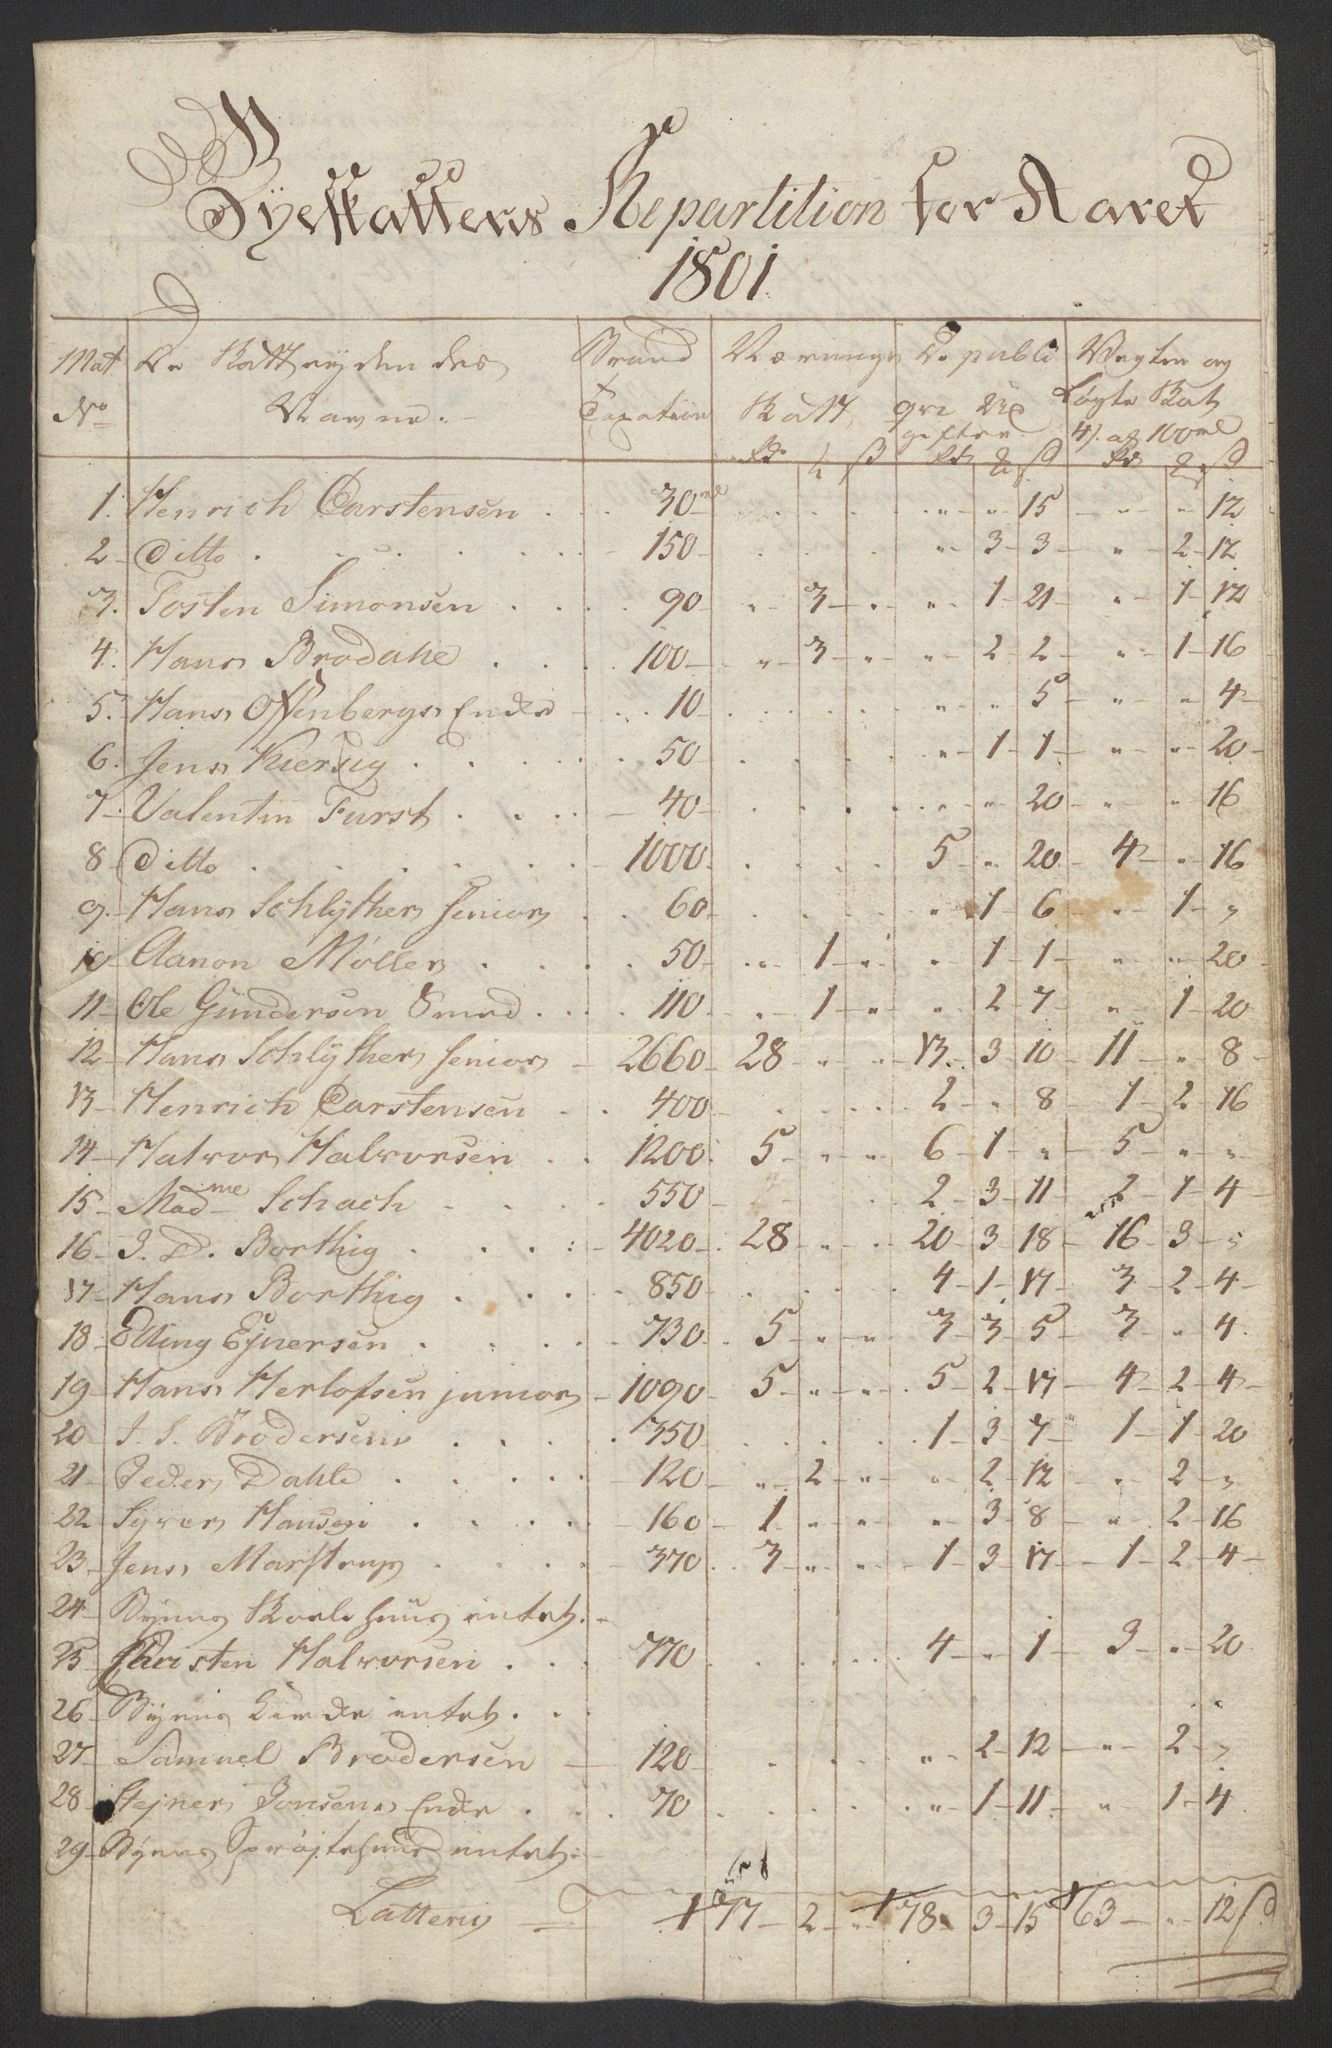 Byeskattens Repartition for Aaret
1801
Mat No | De Skattydendes Navne. | Brand Taxation | Nærings Skatt | De publiqve Udgifter | Vægter og Løgte Skat 4/. af 100 rdl
Rdr | | ß | Rdr | | ß | Rdr | | ß
1. Henrich Carstensen . . 30 rdl " " 15 " " 12
2 Ditto . . . 150 " 3 3 " 2 12
3. Tosten Simonsen . . . 90 " 3 " " 1 21 " 1 12
4. Hans Brodahl . . . 100 " 3 " " 2 2 " 1 16
5. Hans Offenbergs Enke . . 10 " " 5 " " 4
6. Jens Kiersig . . . 50 " 1 1 " " 20
7 Valentin Furst . . . 40 " " 20 " " 16
8 Ditto . . . 1000 5 " 20 4 " 16
9. Hans Schlÿther Senior . . 60 " 1 6 " 1 "
10 Aanon Møller . . . 50 " 1 " " 1 1 " " 20
11 Ole Gundersen Smed . . . 110 " 1 " " 2 7 " 1 20
12 Hans Schlÿther Senior 2660 28 " " 13 3 10 11 " 8
13 Henrich Carstensen . . 400 2 " 8 1 2 16
14 Halvor Halvorsen . . 1200 5 " " 6 1 " 5 " "
15 Madme Schach . . . 550 2 3 11 2 1 4
16 J. D. Borthig . . . 4020 28 " " 20 3 18 16 3 "
17 Hans Borthig . . . 850 4 1 17 3 2 4
18 Elling Ejnersen . . . 730 5 " " 3 3 5 3 " 4
19 Hans Herlofsen junior 1090 5 " " 5 2 17 4 2 4
20 J. S. Brodersen . . . 350 1 3 7 1 1 20
21 Peder Dahl . . . 120 " 2 " " 2 12 " 2 "
22 Syver Hansen . . . 160 1 " " " 3 8 " 2 16
23 Jens Marstrup . . . 370 3 " " 1 3 17 1 2 4
24 Byens Skole huus intet.
25 Christen Halvorsen . . . 770 4 " 1 3 " 20
26 Byens intet . .
27 Samuel Brodersen 120 " 2 12 " 2 "
28 Stejner Jonsens Enke . . . 70 " 1 11 " 1 4
29 Byens Sprøjtehuus intet.
Latteris 77 2 " 78 3 15 63 " 12 ß